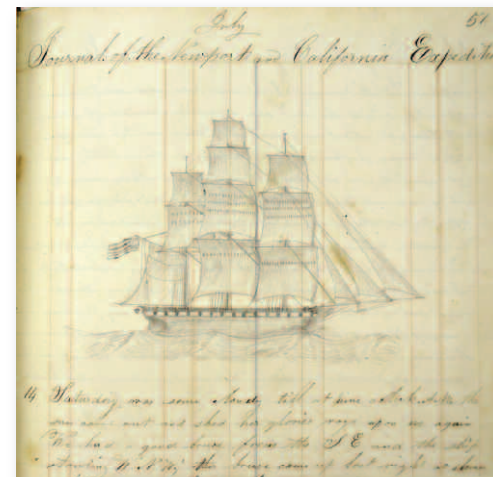 July 51
Journal of the Newport and California Expedit
14 Saturday was some cloudy till at nine oclock
sun came out and shed her glorious rays upon us again
We had a good breeze from the S E and the ship
this breeze came up last night at